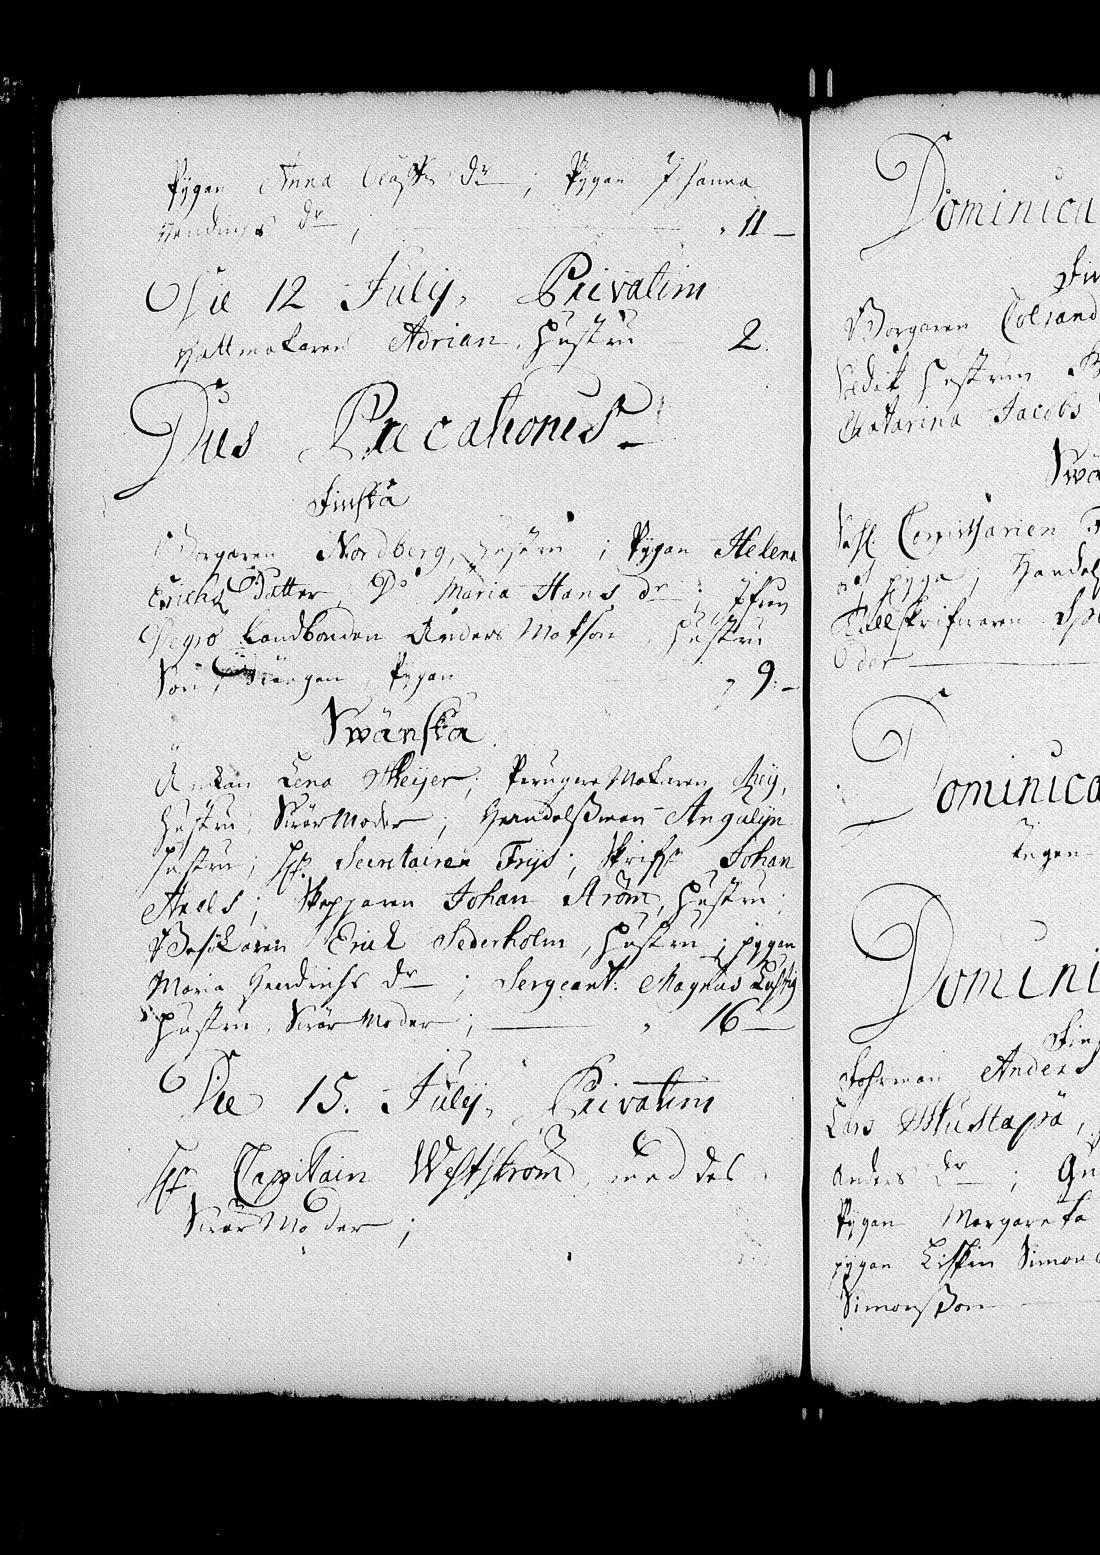 Pygan Anna Clas dr ; Pygan Johanna
Hendrichs dr ; 11
Die 12 Julij, Privatim
Hattmakaren Adrian, hustru 2.
Dies Precationes
Finska
Borgaren Nordberg, hustru ; Pygan Helena
Erichs Dotter, Do Maria Hans dr ; Jfrun
Negro Landbonden Anders Matson, hustru
Son, Drängen, Pygan 9.
Swänska
Änkan Lena Meijer; Peruque Makaren
hustru, Swär Moder ; Handelsman Angelijn
hustru ; Hr. Secretairen Frijs ; Johan
Axels ; Skepparen Johan Ström, hustru ;
Besökaren Erick Sederholm, hustru ; pygan
Maria Hendrichs dr ; Sergeant: Magnus Lustig
hustru, Swär Moder ; 16
Die 15. Julij, Privatim
Hr Capitain Westström, med des
Swär Moder ;
Dominica
Fin
Borgaren
hustrun
Catharina Jacobs
Swä
Comissarien
pyga ; Handels
Tullskrifwaren
der
Dominica
Ingen
Domini
Fin
Fohrman Anders
Lars Mustapä,
Anders dr ;
Pygan Margareta
pygan Liskin Simons
Simonsson